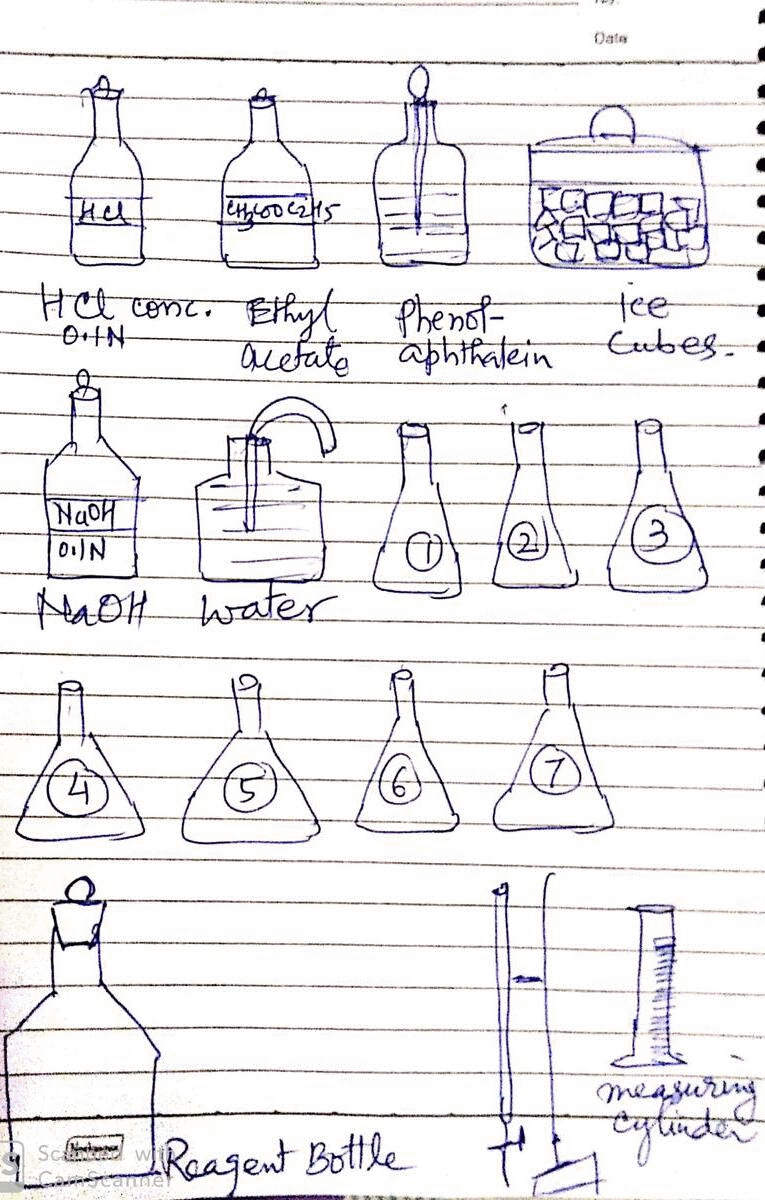 Date
HCl
CH3COOC2H5
HCl conc.
0.1N
Ethyl
acetate
Phenol-
aphthalein
ice
cubes.
NaOH
0.1N
NaOH
Water
1
2
3
4
5
6
7
Reagent Bottle
measuring
cylinder
Scanned with
CamScanner